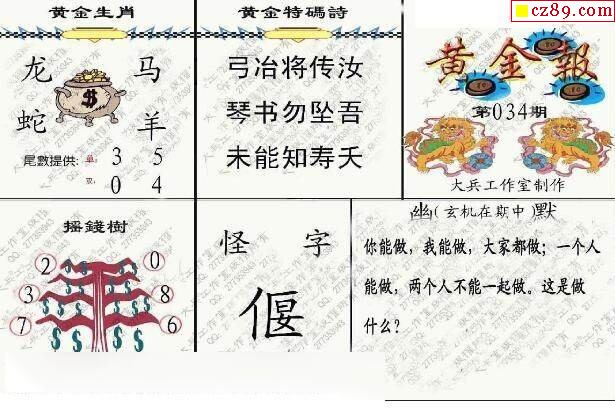 cz89.com
黄金生肖
龙 马
蛇 羊
尾數提供：单：3 5
双：0 4
黄金特碼詩
弓冶将传汝
琴书勿坠吾
未能知寿夭
黄金報
第034期
大兵工作室制作
摇錢樹
2 0
3 8
7 6
怪 字
偃
幽(玄机在期中)默
你能做，我能做，大家都做；一个人
能做，两个人不能一起做。这是做
什么？